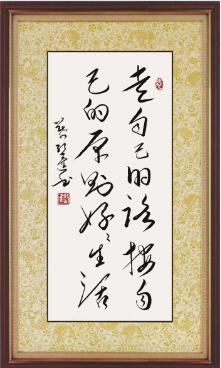 走自己的路按自
己的原则好好生活